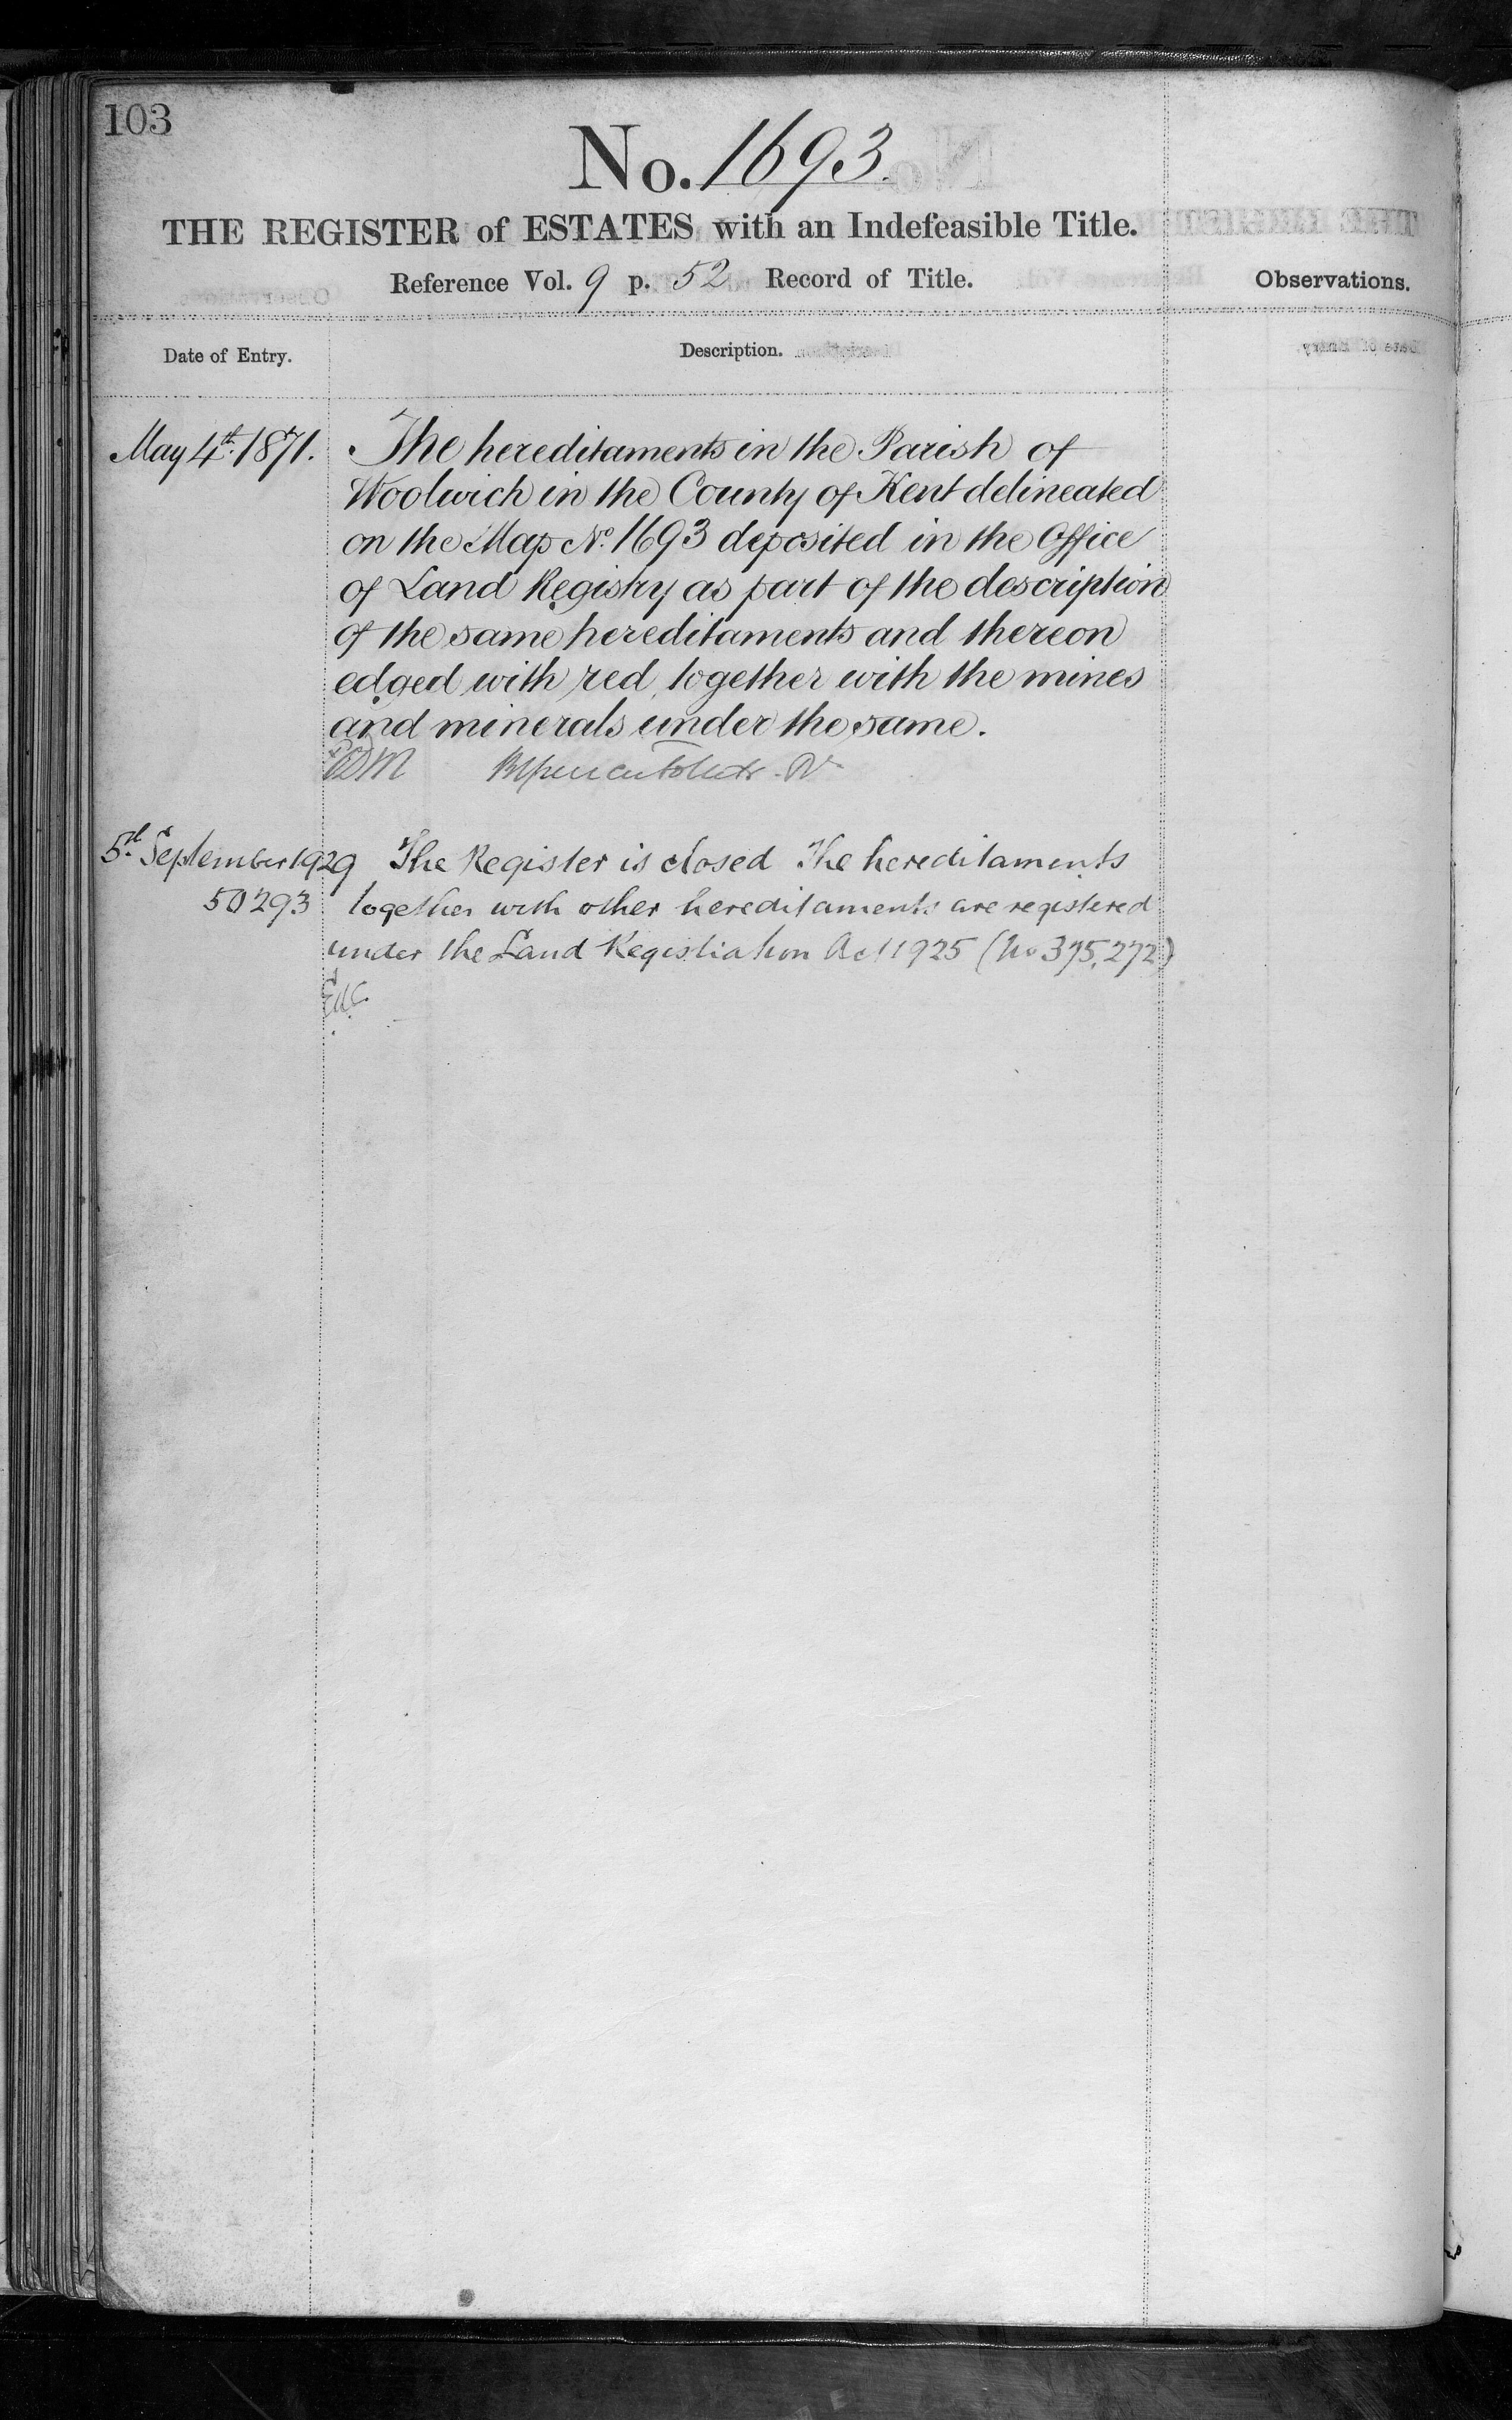 103
No. 1693.
THE REGISTER of ESTATES with an Indefeasible Title.
Reference Vol. 9 p. 52 Record of Title.
Observations.
Date of Entry.
Description.
May 4th. 1871.
The hereditaments in the Parish of
Woolwich in the County of Kent delineated
on the Map No. 1693 deposited in the Office
of Land Registry as part of the description
of the same hereditaments and thereon
edged with red, together with the mines
and minerals under the same.
5th September 1929 The Register is closed The hereditaments
50293 together with other hereditaments are registered
under the Land Registration Act 1925 (No 375,272)